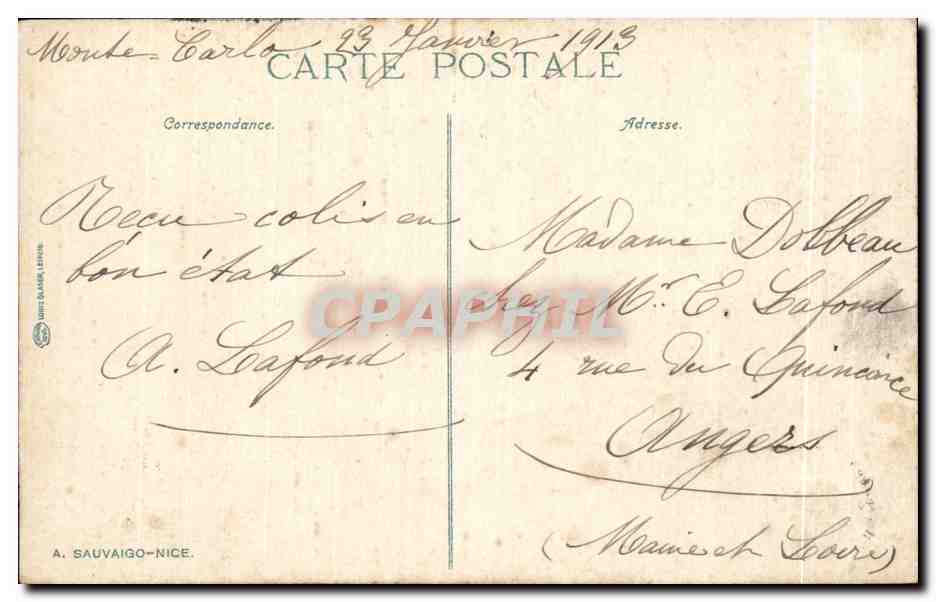 Monte-Carlo 23 Janvier 1913
CARTE POSTALE
Correspondance.
Adresse.
Recu colis en
bon état
A. Lafond
Madame Dolbeau
chez Mr. E. Lafond
4 rue du Quinconce
Angers
(Maine et Loire)
LOUIS GLASER, LEIPZIG.
CPAPHIL
A. SAUVAIGO-NICE.